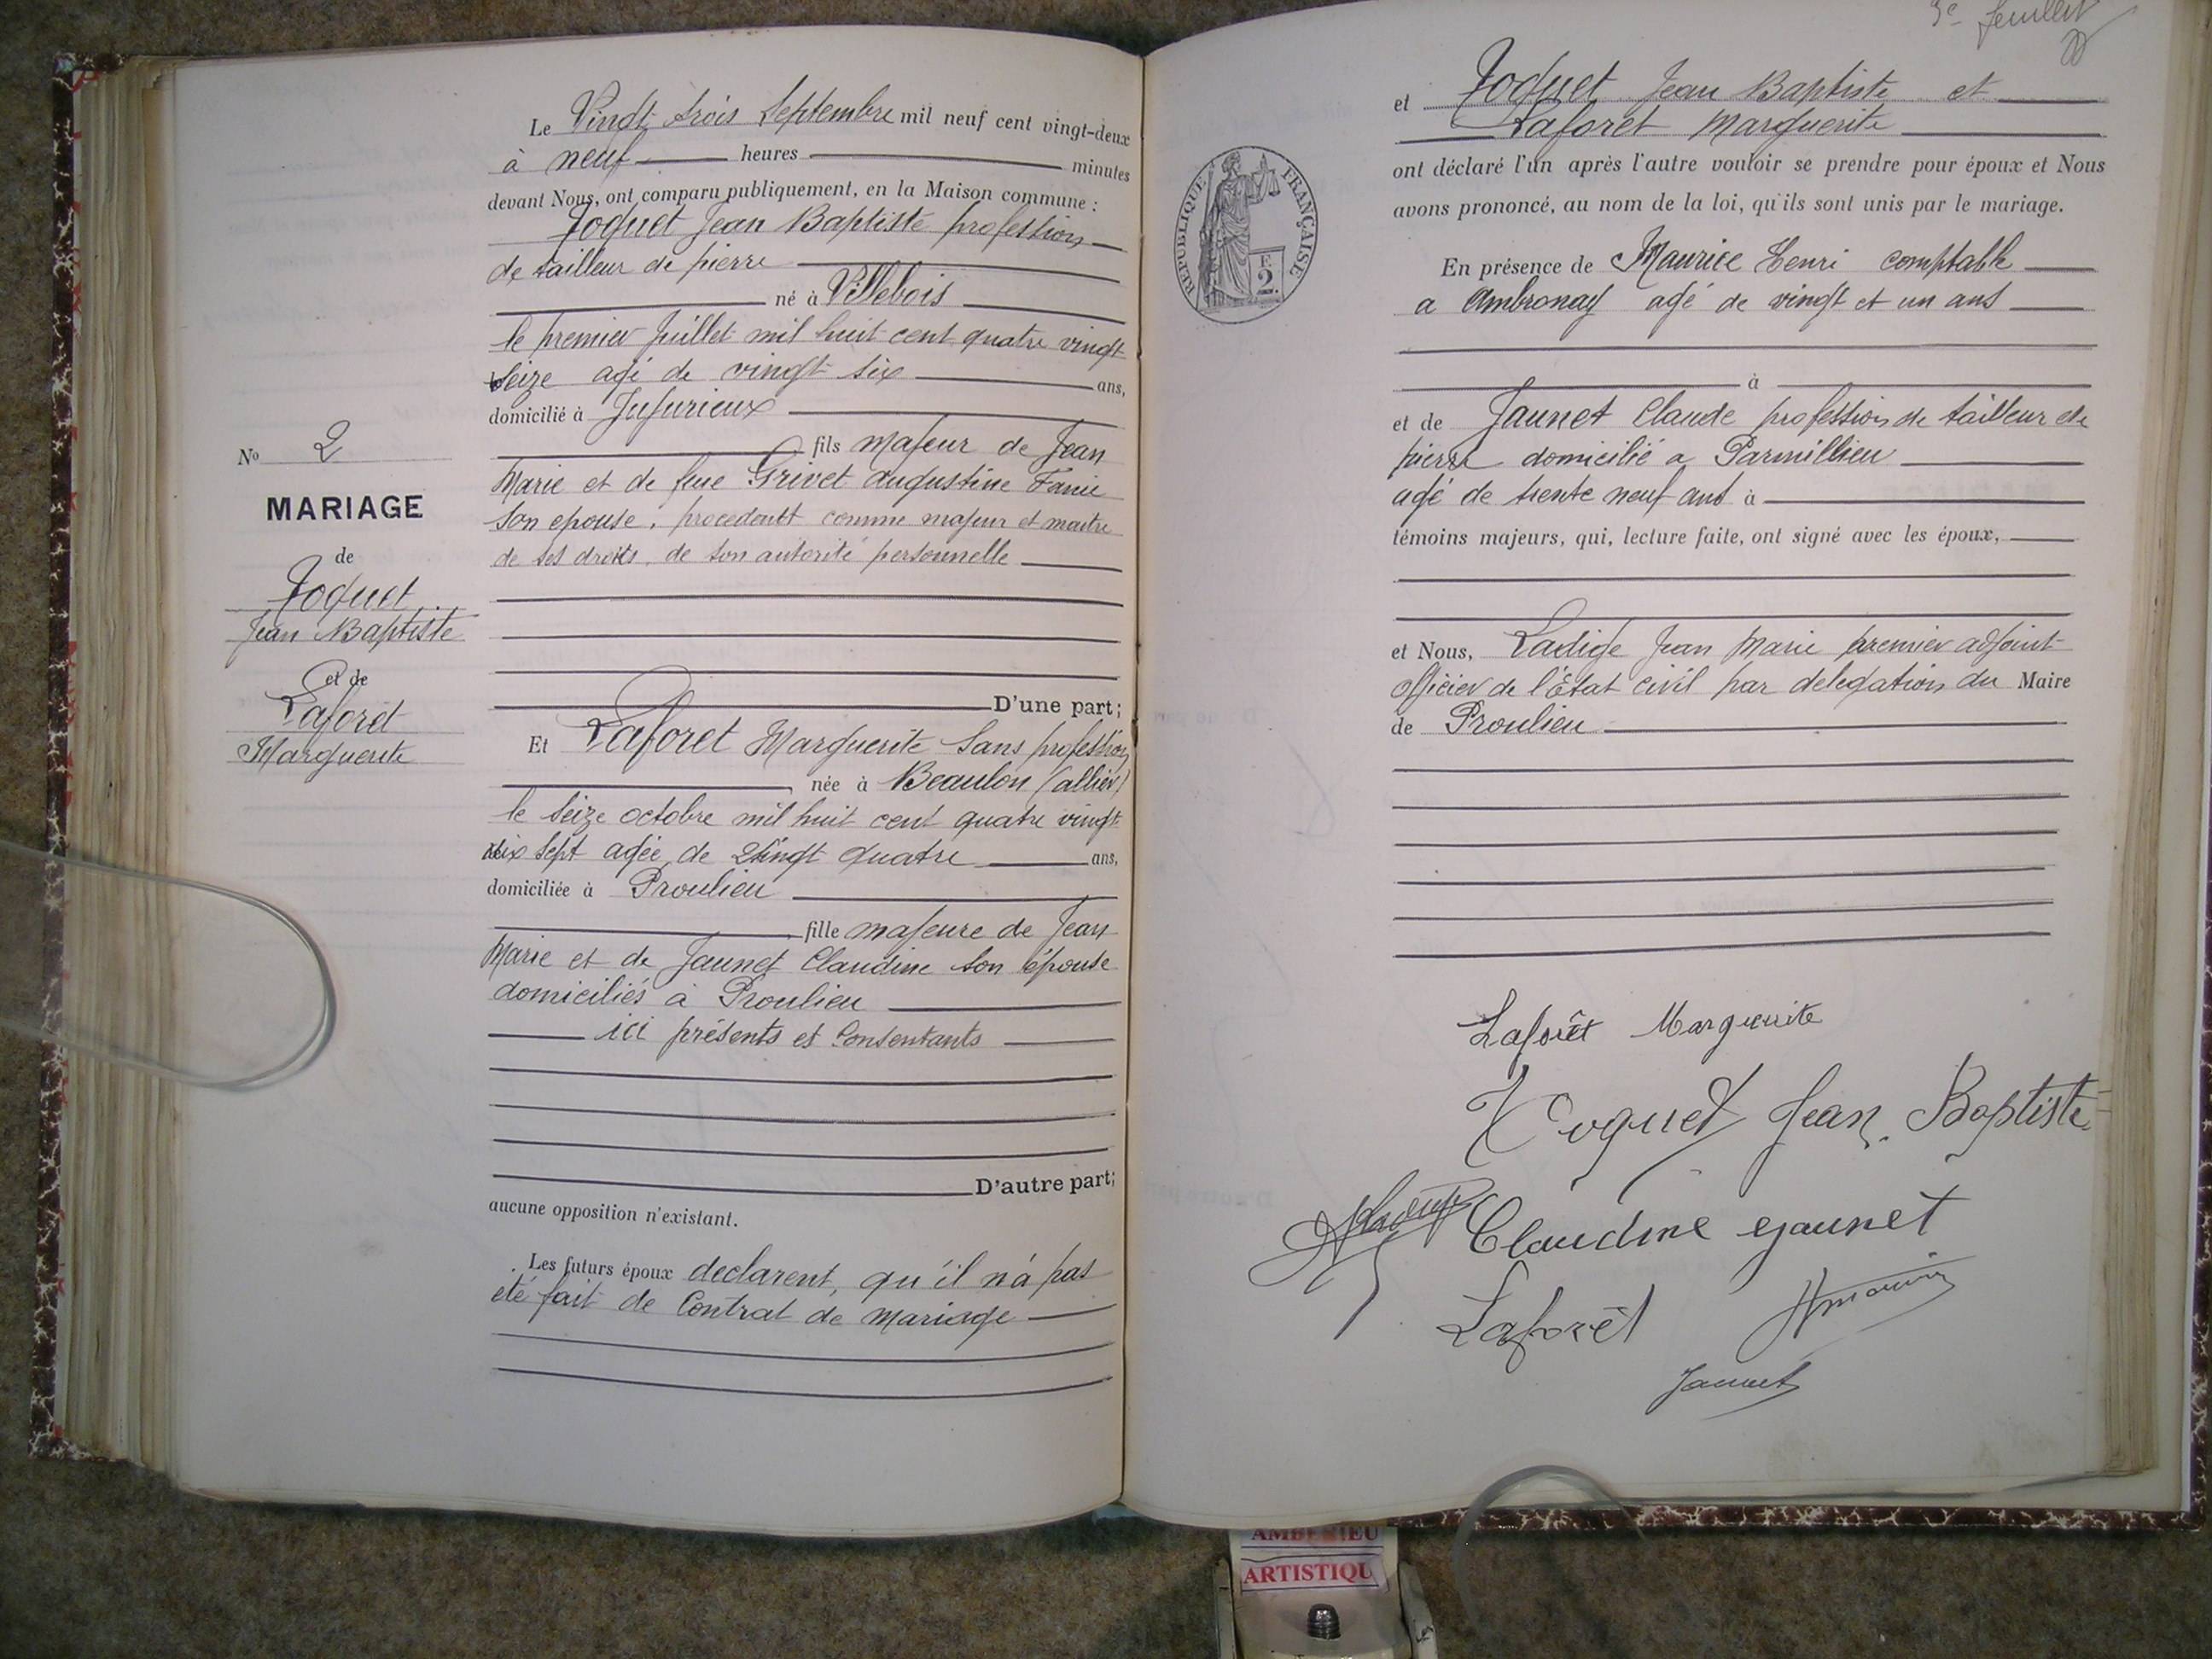 Le Vingt trois Septembre mil neuf cent vingt-deux
à neuf heures minutes
devant Nous, ont comparu publiquement, en la Maison commune :
Toquet Jean Baptiste profession
de tailleur de pierre
né à Villebois
le premier Juillet mil huit cent quatre vingt
seize agé de vingt six ans,
domicilié à Jujurieux
fils majeur de Jean
Marie et de feue Grivet Augustine Fanie
son epouse, procedant comme majeur et maitre
de ses droits, de son autorité personnelle
No 2
MARIAGE
de
Toquet
Jean Baptiste
et de
Laforêt
Marguerite
D'une part;
Et Laforet Marguerite Sans profession
née à Beaulon (allier)
le seize octobre mil huit cent quatre vingt
dix sept agée de vingt quatre ans,
domiciliée à Proulieu
fille majeure de Jean
Marie et de Jaunet Claudine son épouse
domiciliés à Proulieu
ici présents et Consentants
D'autre part;
aucune opposition n'existant.
Les futurs époux declarent, qu'il n'a pas
été fait de Contrat de mariage
3e feuillet
et Toquet Jean Baptiste et
Laforêt Marguerite
ont déclaré l'un après l'autre vouloir se prendre pour époux et Nous
avons prononcé, au nom de la loi, qu'ils sont unis par le mariage.
RÉPUBLIQUE FRANÇAISE
F.
2
En présence de Maurice Henri comptable
a Ambronay agé de vingt et un ans
à
et de Jaunet Claude profession de tailleur de
pierre domicilié a Parmillieu
agé de trente neuf ans à
témoins majeurs, qui, lecture faite, ont signé avec les époux,
et Nous, Ladige Jean Marie premier adjoint
officier de l'État civil par delegation du Maire
de Proulieu
Laforêt Marguerite
Toquet Jean Baptiste
Claudine Jaunet
Laforêt
Hmaurice
Jaunet
AMBERIEU
ARTISTIQU